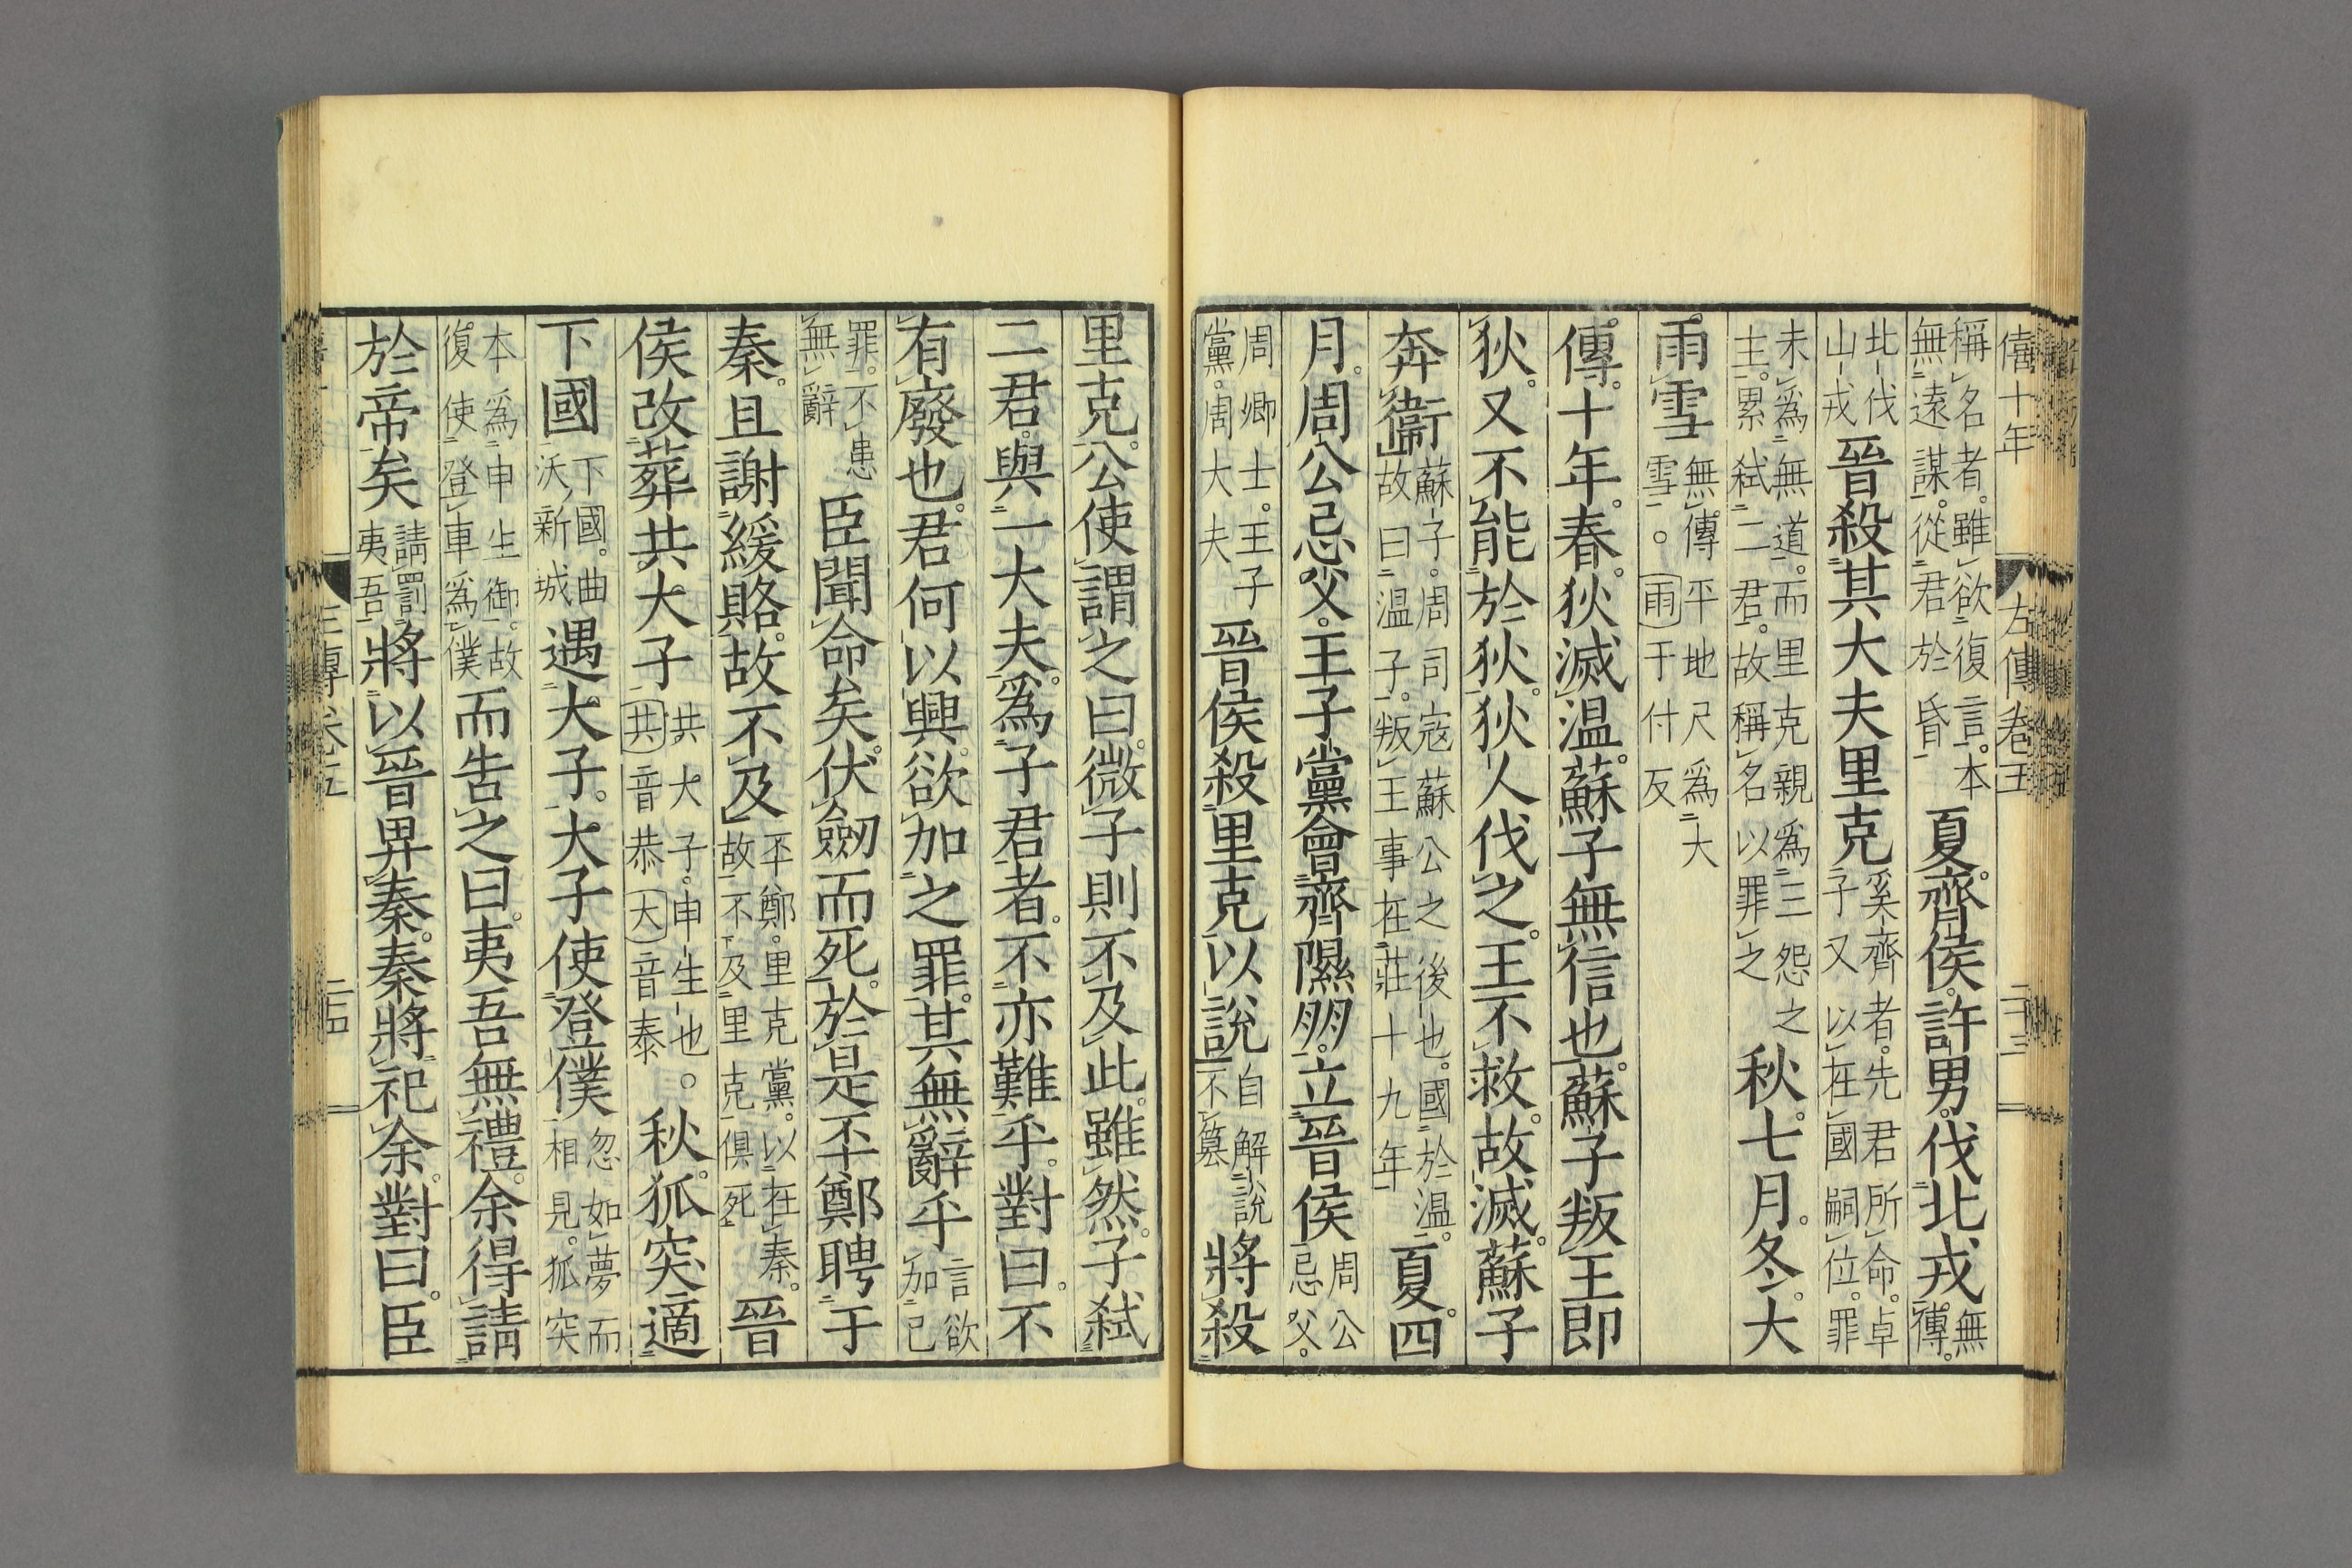 僖十年 左傳卷五 二十三
稱名者。雖欲復言。本
無遠謀。從君於昏
夏。齊侯。許男。伐北戎。
無傳。
北伐
山戎
晉殺其大夫里克
奚齊者。先君所命。卓
子又以在國嗣位。罪
未爲無道。而里克親爲三怨之
主。累弒二君。故稱名以罪之
秋。七月。冬。大
雨雪
無傳平地尺爲大
雪。雨于付反
傳。十年。春。狄滅温。蘇子無信也。蘇子叛王即
狄。又不能於狄。狄人伐之。王不救。故滅。蘇子
奔衞
蘇子。周司寇蘇公之後也。國於温。
故曰温子。叛王事在莊十九年
夏。四
月。周公忌父。王子黨會齊隰朋。立晉侯
周公
忌父。
周卿士。王子
黨。周大夫
晉侯殺里克以説
自解説
不篡
將殺
里克。公使謂之曰。微子則不及此。雖然。子弒
二君。與一大夫。爲子君者。不亦難乎。對曰。不
有廢也。君何以興。欲加之罪。其無辭乎
言欲
加己
罪。不患
無辭
臣聞命矣。伏劒而死。於是丕鄭聘于
秦。且謝緩賂。故不及
丕鄭。里克黨。以在秦。
故不及里克俱死
晉
侯改葬共大子
共大子。申生也。
共音恭大音泰
秋。狐突適
下國
下國。曲
沃新城
遇大子。大子使登僕
忽如夢而
相見。狐突
本爲申生御。故
復使登車爲僕
而告之曰。夷吾無禮。余得請
於帝矣
請罰
夷吾
將以晉畀秦。秦將祀余。對曰。臣